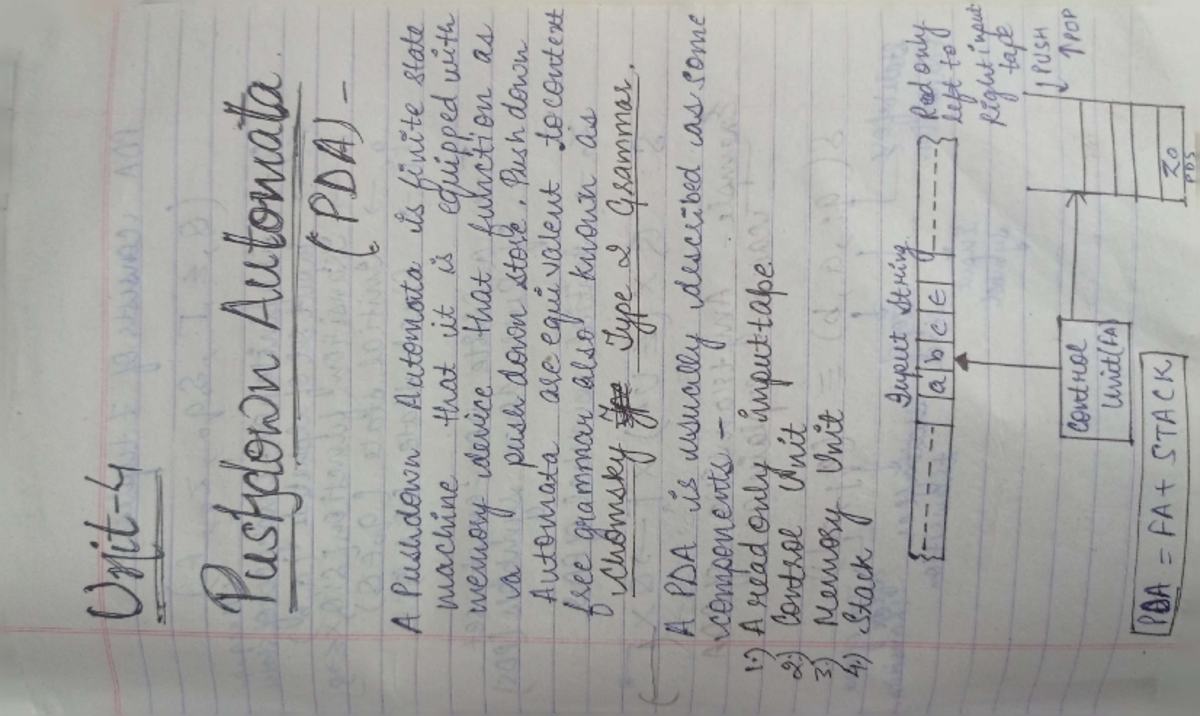 Unit-4
Pushdown Automata
(PDA) -
A Pushdown Automata is finite state
machine that it is equipped with
memory device that function as
a push down store. Push down
Automata are equivalent to context
free grammar also known as
Chomsky Type 2 Grammar.
A PDA is usually described as some
components -
1.) A read only input tape.
2.) Control Unit
3.) Memory Unit
4.) Stack
Input String
a b c E
Read only
left to
Right input
tape
↓ PUSH
↑ POP
Control
Unit (FA)
Z0
PDS
PDA = FA + STACK